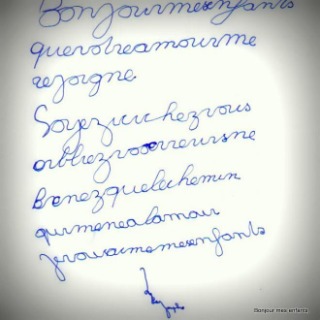 Bonjourmesenfants
quevotreamourme
rejoigne
Soyezicichezvous
oubliezvoserreursne
prenezquelechemin
quimenealamour
jevousaimemesenfants
Bonjour mes enfants